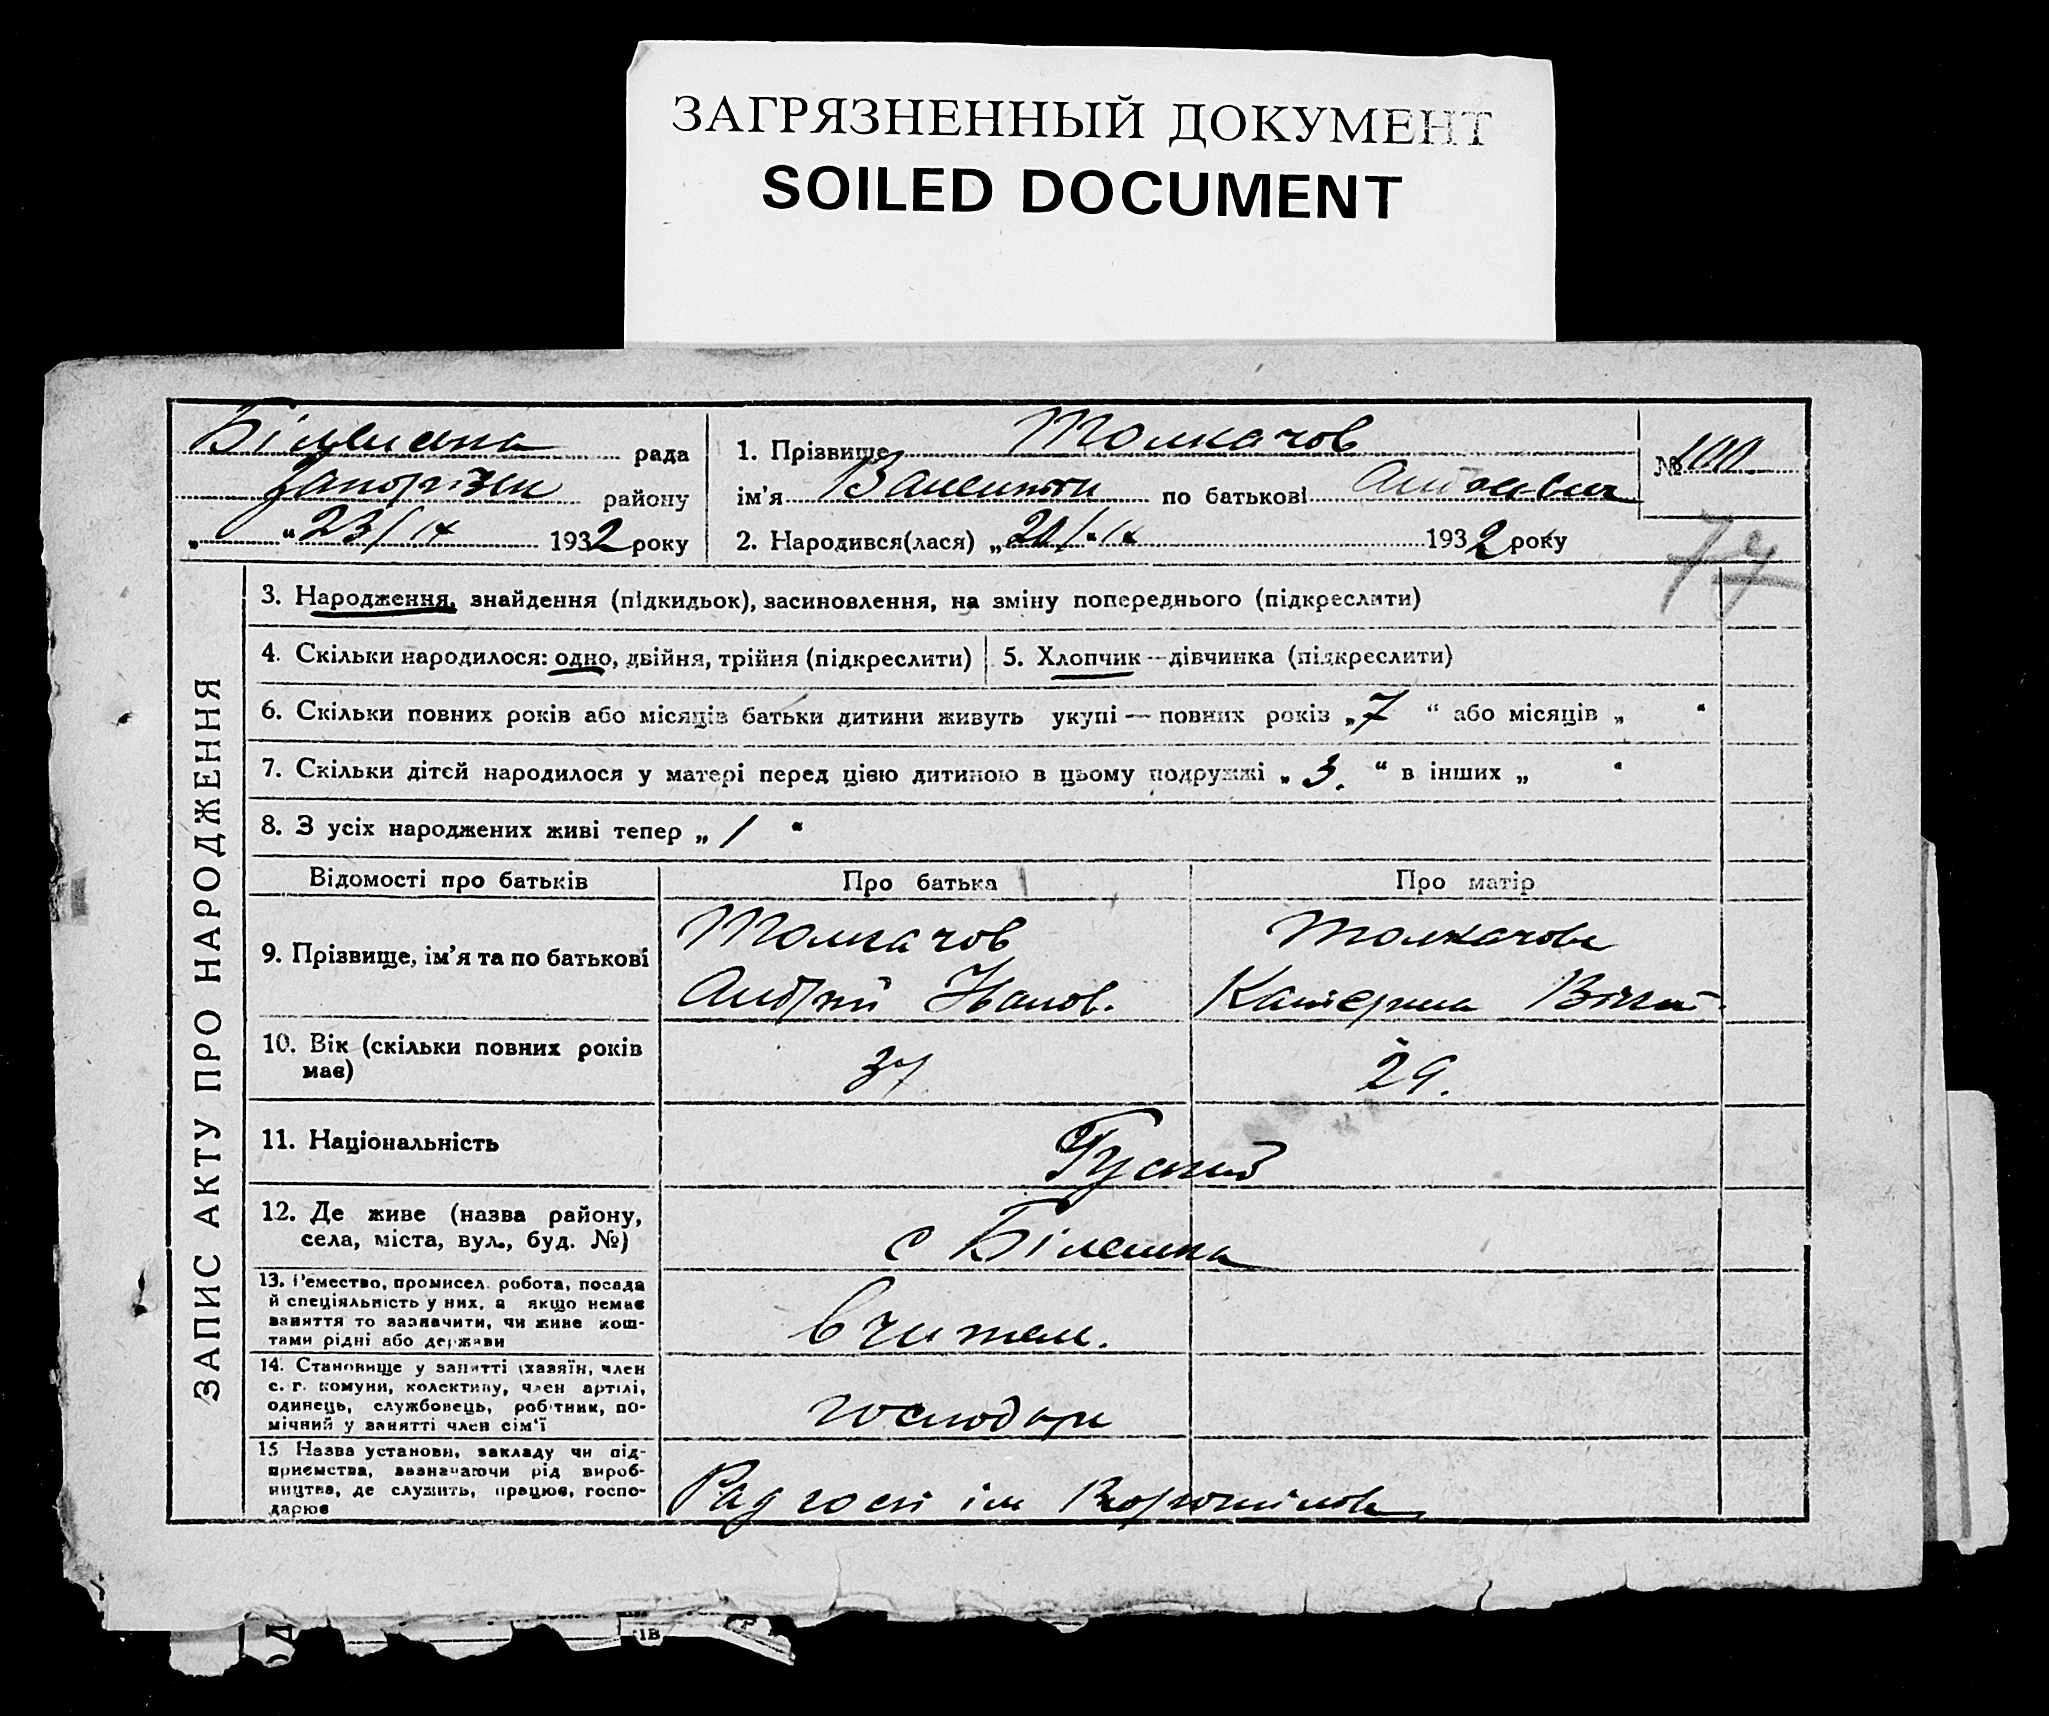 ЗАГРЯЗНЕННЫЙ ДОКУМЕНТ
SOILED DOCUMENT
рада
району
„ “ 23/IX 1932 року
1. Прізвище Толкачов
ім'я Валентин по батькові
2. Народився(лася) „20/“ IX 1932 року
№ 100
77
ЗАПИС АКТУ ПРО НАРОДЖЕННЯ
3. Народження, знайдення (підкидьок), засиновлення, на зміну попереднього (підкреслити)
4. Скільки народилося: одно, двійня, трійня (підкреслити)
5. Хлопчик — дівчинка (підкреслити)
6. Скільки повних років або місяців батьки дитини живуть укупі — повних років „7“ або місяців „ “
7. Скільки дітей народилося у матері перед цією дитиною в цьому подружжі „3.“ в інших „ “
8. З усіх народжених живі тепер „1“
Відомості про батьків Про батька Про матір
9. Прізвище, ім'я та по батькові
Толкачов
Андрій Иванов.
Толкачова
Катерина
10. Вік (скільки повних років
має)
37 29.
11. Національність
Руский
12. Де живе (назва району,
села, міста, вул., буд. №)
с Біленька
13. Ремество, промисел. робота, посада
й спеціяльність у них, а якщо немає
заняття то зазначити, чи живе кош-
тами рідні або держави
вчитель.
14. Становище у занятті (хазяїн, член
с.-г. комуни, колективу, член артілі,
одинець, службовець, робітник, по-
мічний у занятті член сім'ї
господарь
15 Назва установи, закладу чи під-
приємства, зазначаючи рід вироб-
ництва, де служить, працює, госпо-
дарює
Радгосп ім Ворошилова
ів